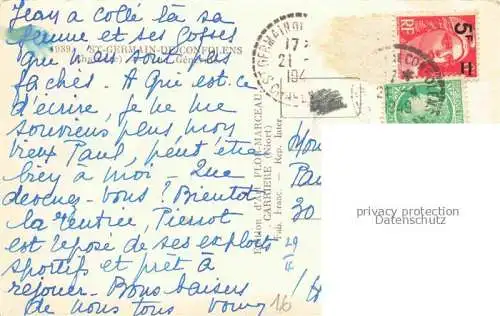 Jean a collé là sa
femme et ses gosses
939. - ST-GERMAIN-DE-CONFOLENS
que nous sont plus
fachés. A que est-ce
d'écrire, je ne me
souviens plus mon
vieux Paul, peut être
bien à moi - Que
devenez-vous ? Bientôt
la rentrée, Pierrot
est reposé de ses exploits
sportifs et prêt à
rejouer - Bons baisers
de nous tous
Edition d'Art FLOR-MARCEAU
CARRIÈRE (Niort)
Fab. Franc. - Rep. Inter.
ST GERMAIN DE
17
21 -
194
5F
RF
30
29
16
privacy protection
Datenschutz